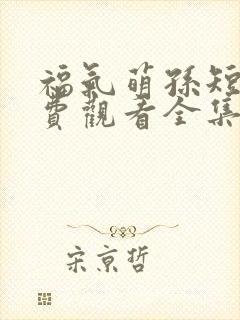 福氣萌孫短
費觀看全集
宋京哲